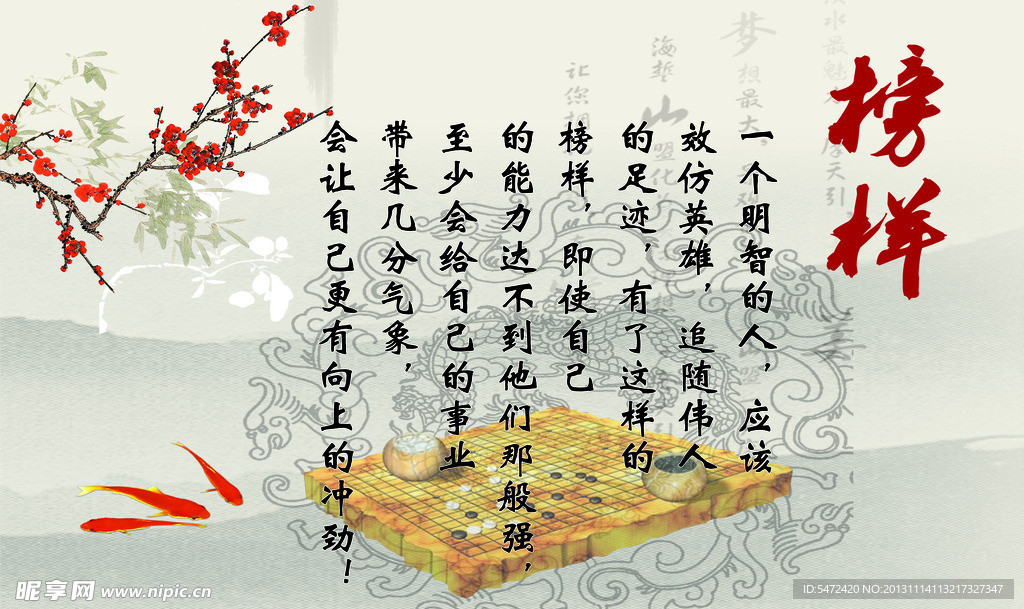 榜样
一个明智的人，应该
效仿英雄，追随伟人
的足迹，有了这样的
榜样，即使自己
的能力达不到他们那般强，
至少会给自己的事业
带来几分气象，
会让自己更有向上的冲劲！
梦想最大
海誓山盟化
让您相
昵享网 www.nipic.cn
ID:5472420 NO:20131114113217327347